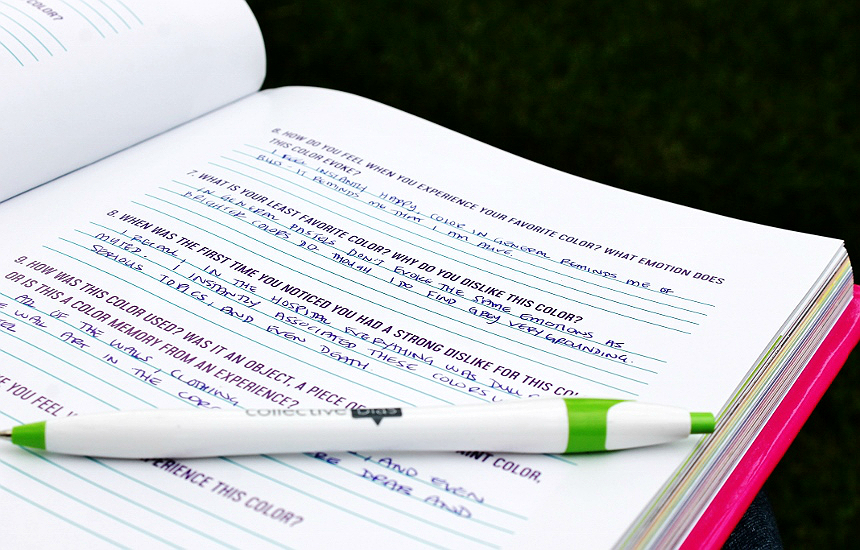 COLOR?
6. HOW DO YOU FEEL WHEN YOU EXPERIENCE YOUR FAVORITE COLOR? WHAT EMOTION DOES
THIS COLOR EVOKE?
I FEEL INSTANTLY HAPPY. COLOR IN GENERAL REMINDS ME OF
IT REMINDS ME THAT I AM ALIVE.
7. WHAT IS YOUR LEAST FAVORITE COLOR? WHY DO YOU DISLIKE THIS COLOR?
IN GENERAL PASTELS DON'T EVOKE THE SAME EMOTIONS AS
BRIGHTER COLORS DO. THOUGH I DO FIND GREY VERY GROUNDING.
8. WHEN WAS THE FIRST TIME YOU NOTICED YOU HAD A STRONG DISLIKE FOR THIS
I RECALL, IN THE HOSPITAL EVERYTHING WAS DULL
MUTED. I INSTANTLY ASSOCIATED THESE COLORS
SERIOUS TOPICS, AND EVEN DEATH
9. HOW WAS THIS COLOR USED? WAS IT AN OBJECT, A PIECE OF
OR IS THIS A COLOR MEMORY FROM AN EXPERIENCE?
ALL OF THE WALLS, CLOTHING
WALL ART IN THE
YOU FEEL
COLOR,
collective bias
, AND EVEN
DRAB AND
THIS COLOR?